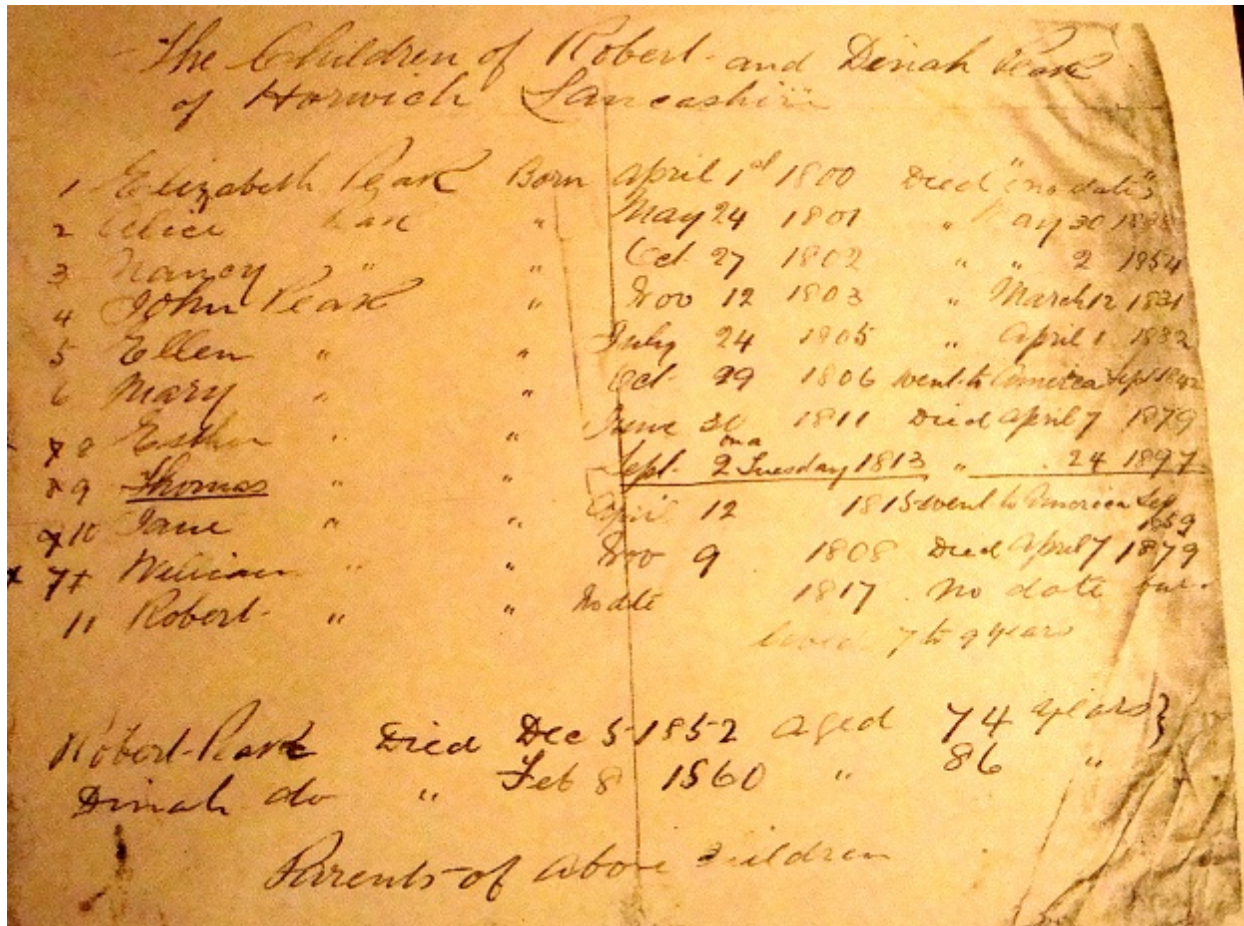 The Children of Robert and Dinah Peak
of Horwich Lancashire
1 Elizabeth Peak Born April 1st 1800 Died "no date"
2 Alice Peak " May 24 1801 " May 30
3 Nancy " " Oct 27 1802 " " 2 1854
4 John Peak " Nov 12 1803 " March 12 1831
5 Ellen " " July 24 1805 " April 1 1832
6 Mary " " Oct 29 1806 went to America Sept 1842
8 Esther " " June 30 1811 Died April 7 1879
on a
9 Thomas " " Sept 2 Tuesday 1813 " 24 1897
10 Jane " " April 12 1815 went to America Sep
1859
7 William " " Nov 9 1808 Died April 7 1879
11 Robert " " No date 1817 no date but
lived 7 to 9 years
Robert Peak Died Dec 5 1852 aged 74 years }
Dinah do " Feb 8 1860 " 86 "
Parents of above children